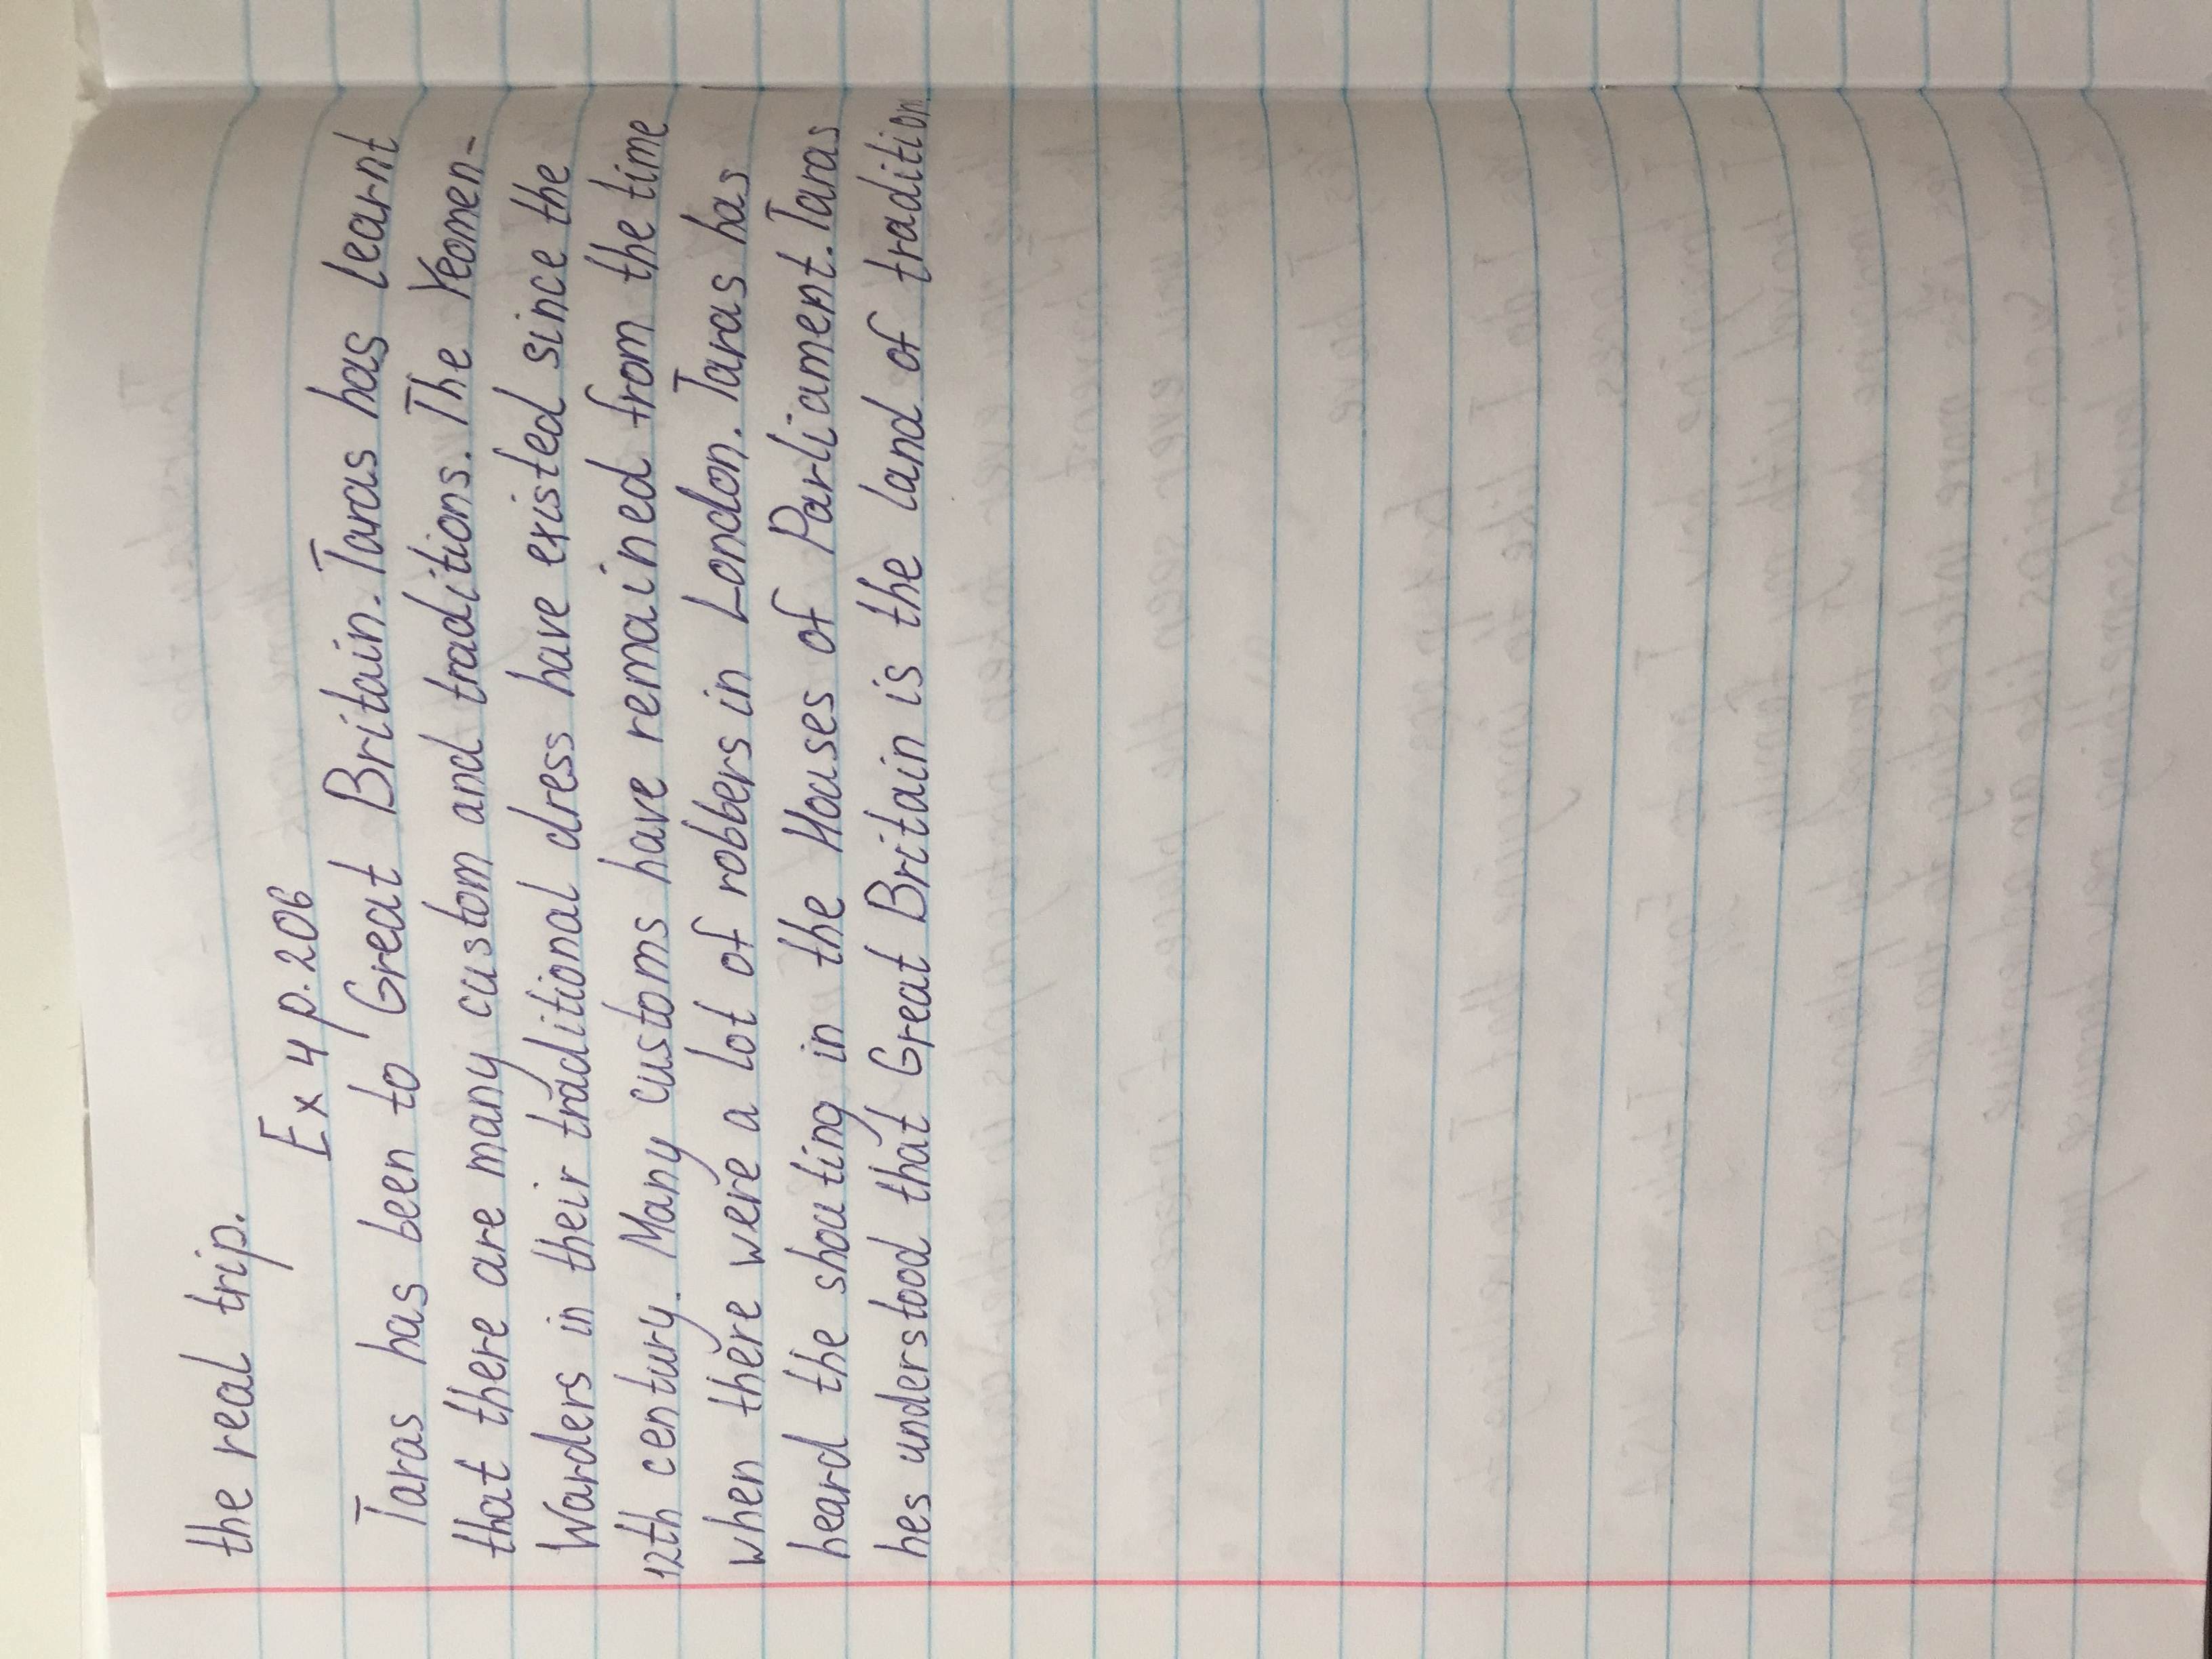 the real trip.
Ex 4 p. 206
Taras has been to Great Britain. Taras has learnt
that there are many custom and traditions. The Yeomen-
Warders in their traditional dress have existed since the
12th century. Many customs have remained from the time
when there were a lot of robbers in London. Taras has
heard the shouting in the Houses of Parliament. Taras
hes understood that Great Britain is the land of tradition